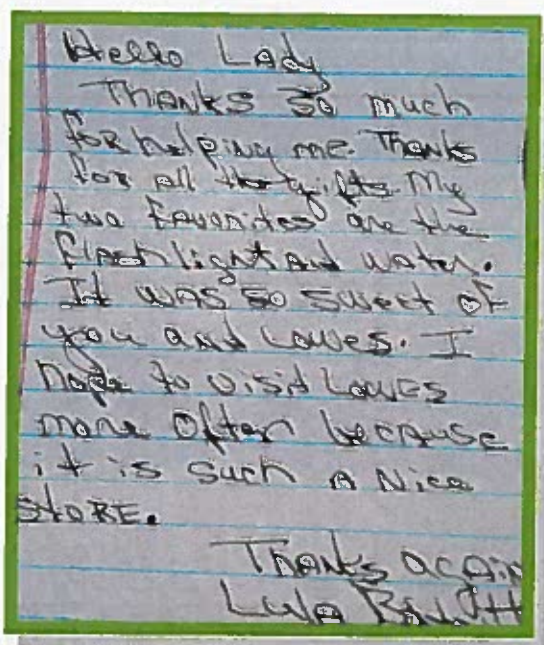 Hello Lady
THANKS so much
for helping me. Thanks
for all the gifts. My
two favorites are the
flashlight and water.
It was so sweet of
you and Lowes. I
hope to visit Lowes
more often because
it is such a Nice
store.
Thanks again